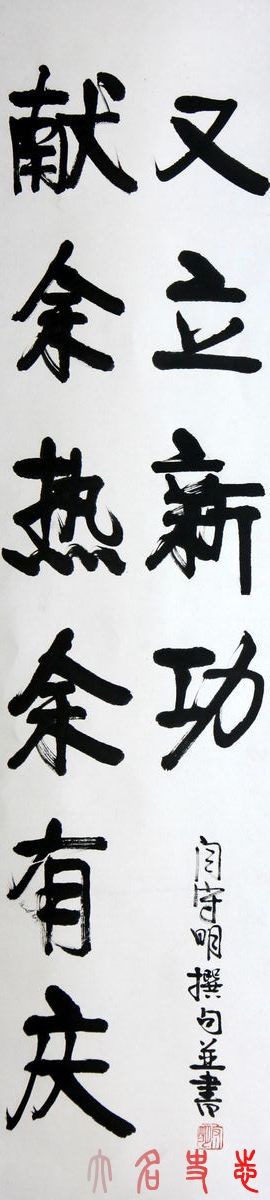 献余热余有庆
又立新功
闫守明撰句並書
大名史志